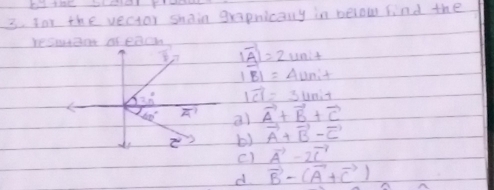 3. for the vector shain graphically in below find the
resultant of each
|A⃗| = 2 unit
|B⃗| = 4 unit
|C⃗| = 3 unit
30°
A⃗
C⃗
a) A⃗ + B⃗ + C⃗
b) A⃗ + B⃗ - C⃗
c) A⃗ - 2C⃗
d B⃗ - (A⃗ + C⃗)